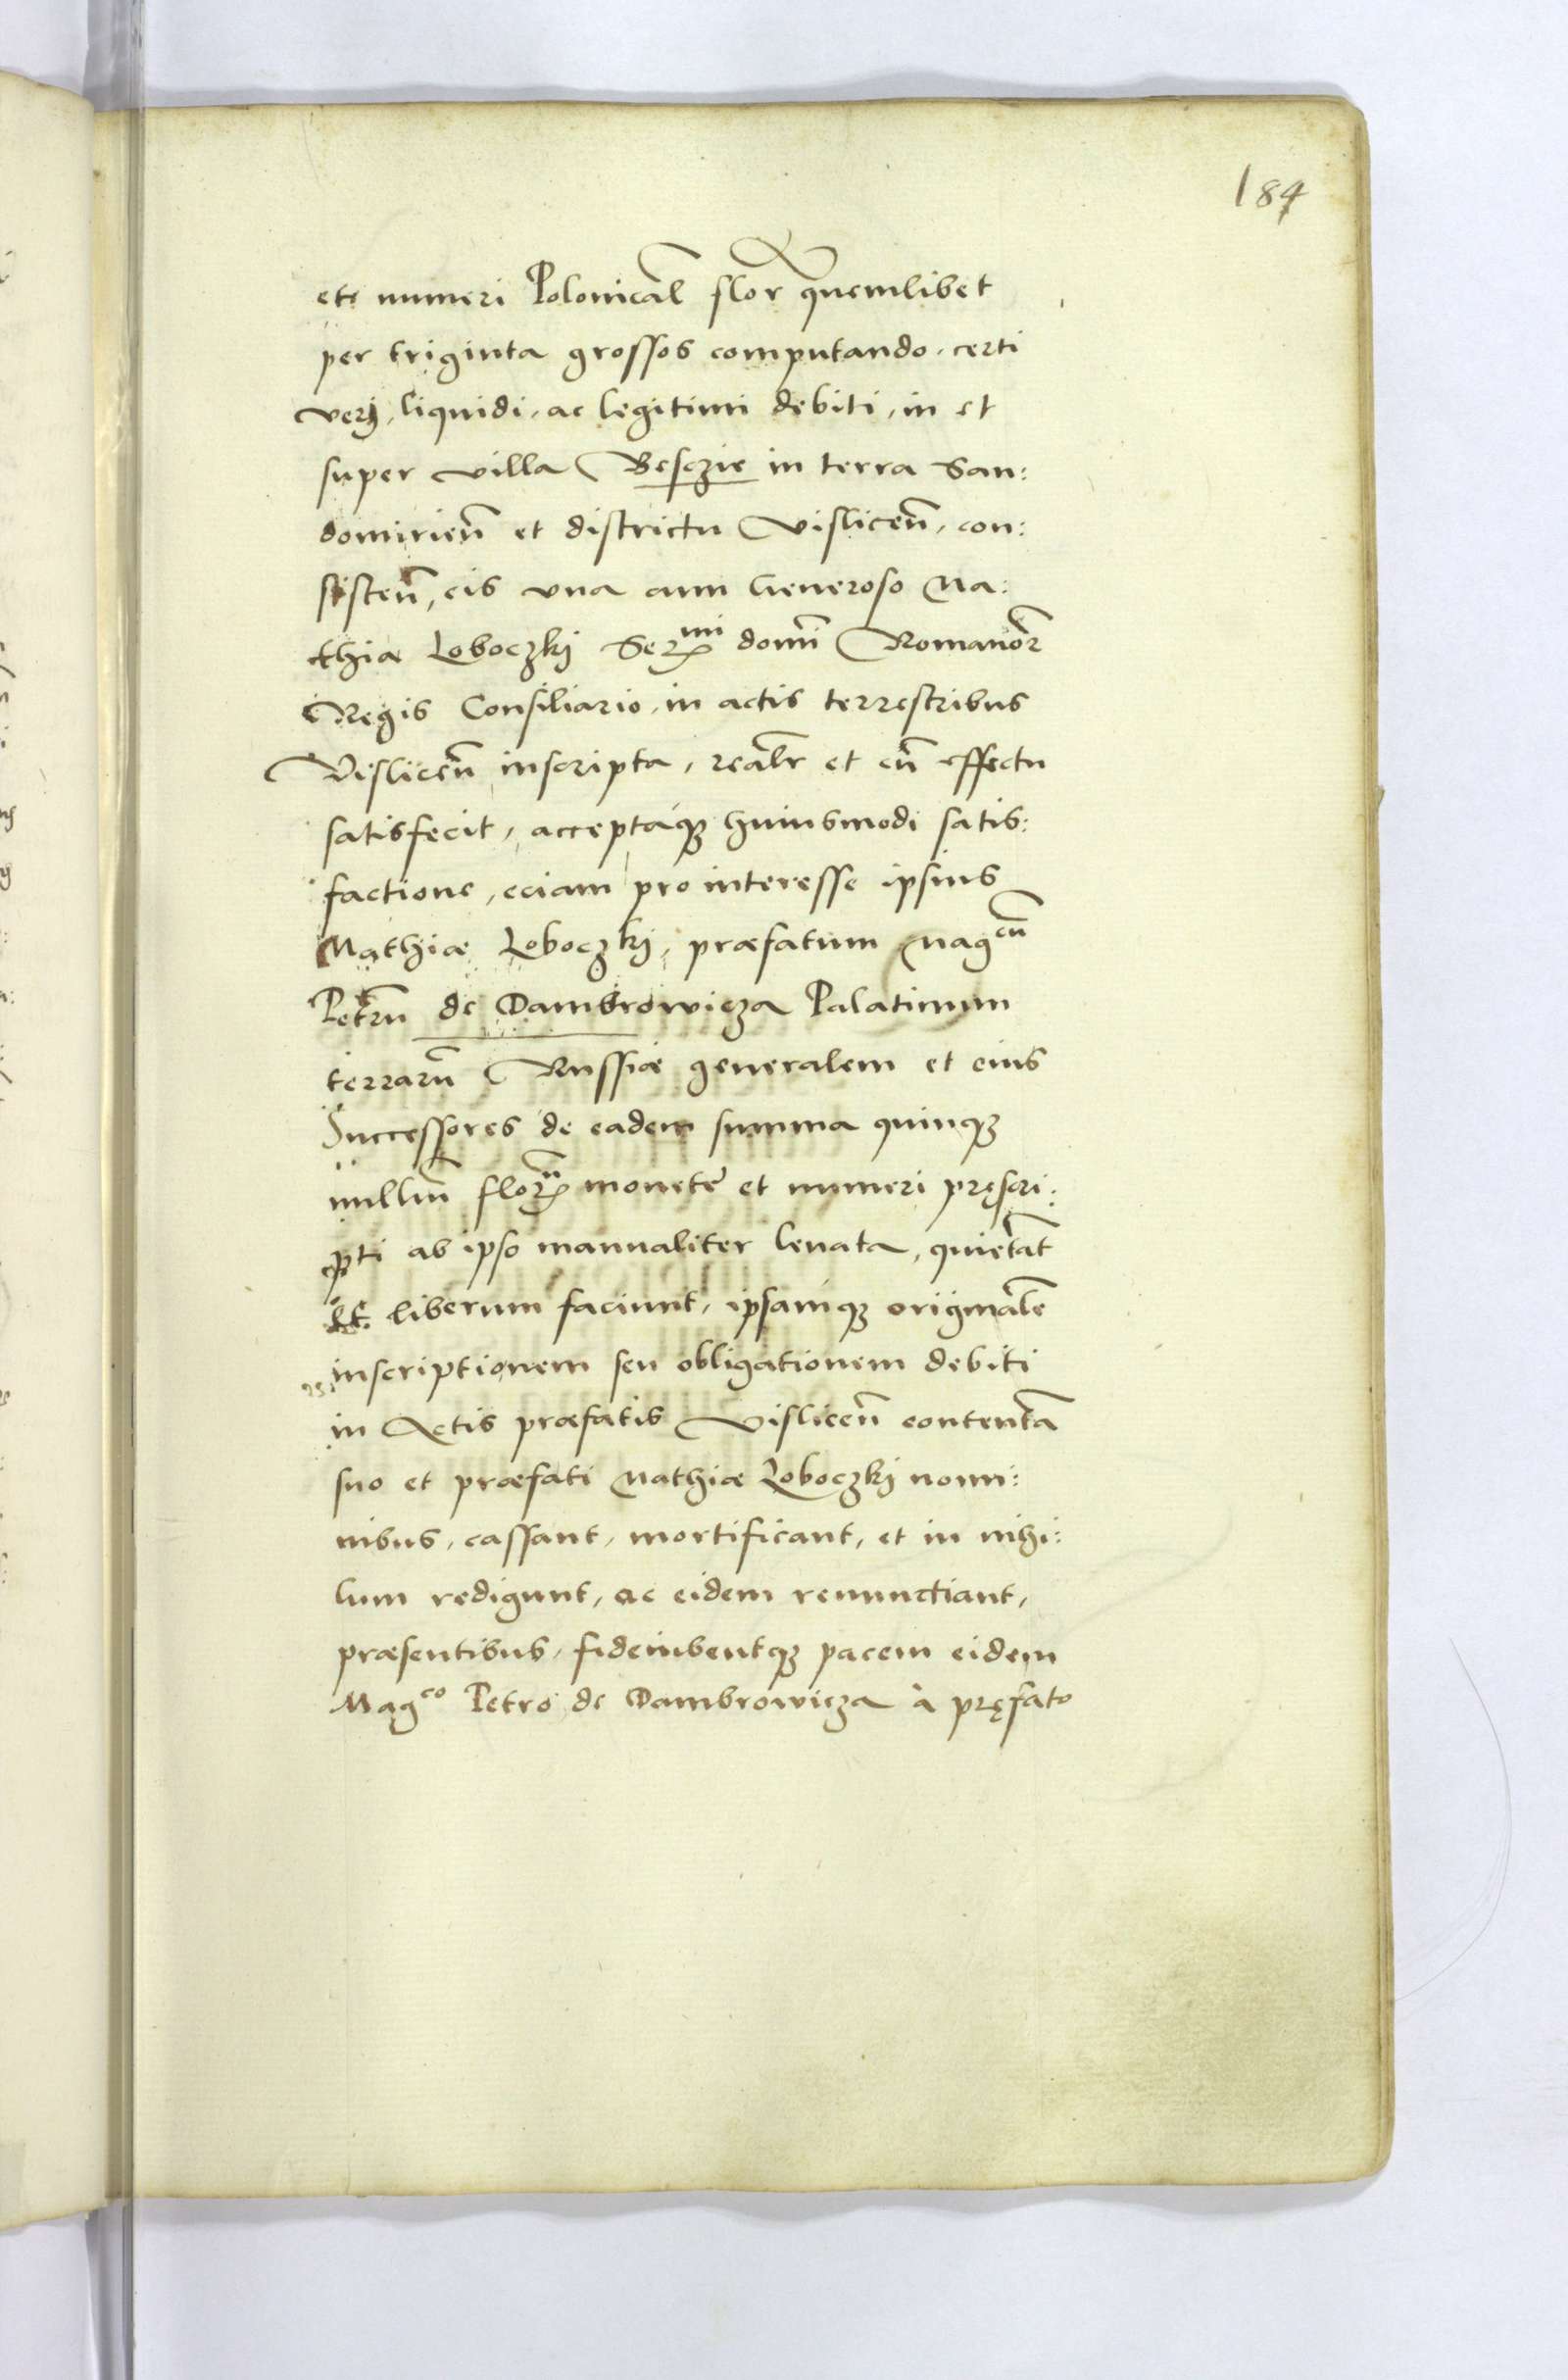 184
et numeri Polonical flor quemlibet
per triginta grossos computando, certi
verj, liquidi, ac legitimi debiti, in et
super villa Beszczie in terra San:
domirien̄ et districtu Vislicen̄, con:
sisten̄, eis vna cum Generoso Ma:
thia Loboczkj Ser^mi domī Romanor
Regis Consiliario, in actis terrestribus
Vislicen̄ inscripta, realr et cū effectu
satisfecit, acceptaq3 huiusmodi satis:
factione, eciam pro interesse ipsius
Mathiæ Loboczkj, præfatum Mag^cū
Petrū de Dambrowicza Palatinum
terrarū Russiæ generalem et eius
Successores de eadem summa quinq3
milliū flor^ū monete et numeri pręscri:
pti ab ipso manualiter leuata, quietāt
et liberum faciunt, ipsamq3 originalē
inscriptionem seu obligationem debiti
in Actis præfatis Vislicen̄ contentā
suo et præfati Mathiæ Loboczkj nomi:
nibus, cassant, mortificant, et in nihi:
lum redigunt, ac eidem renunctiant,
præsentibus, fideiubentq3 pacem eidem
Mag^co Petro de Dambrowicza à pręfato